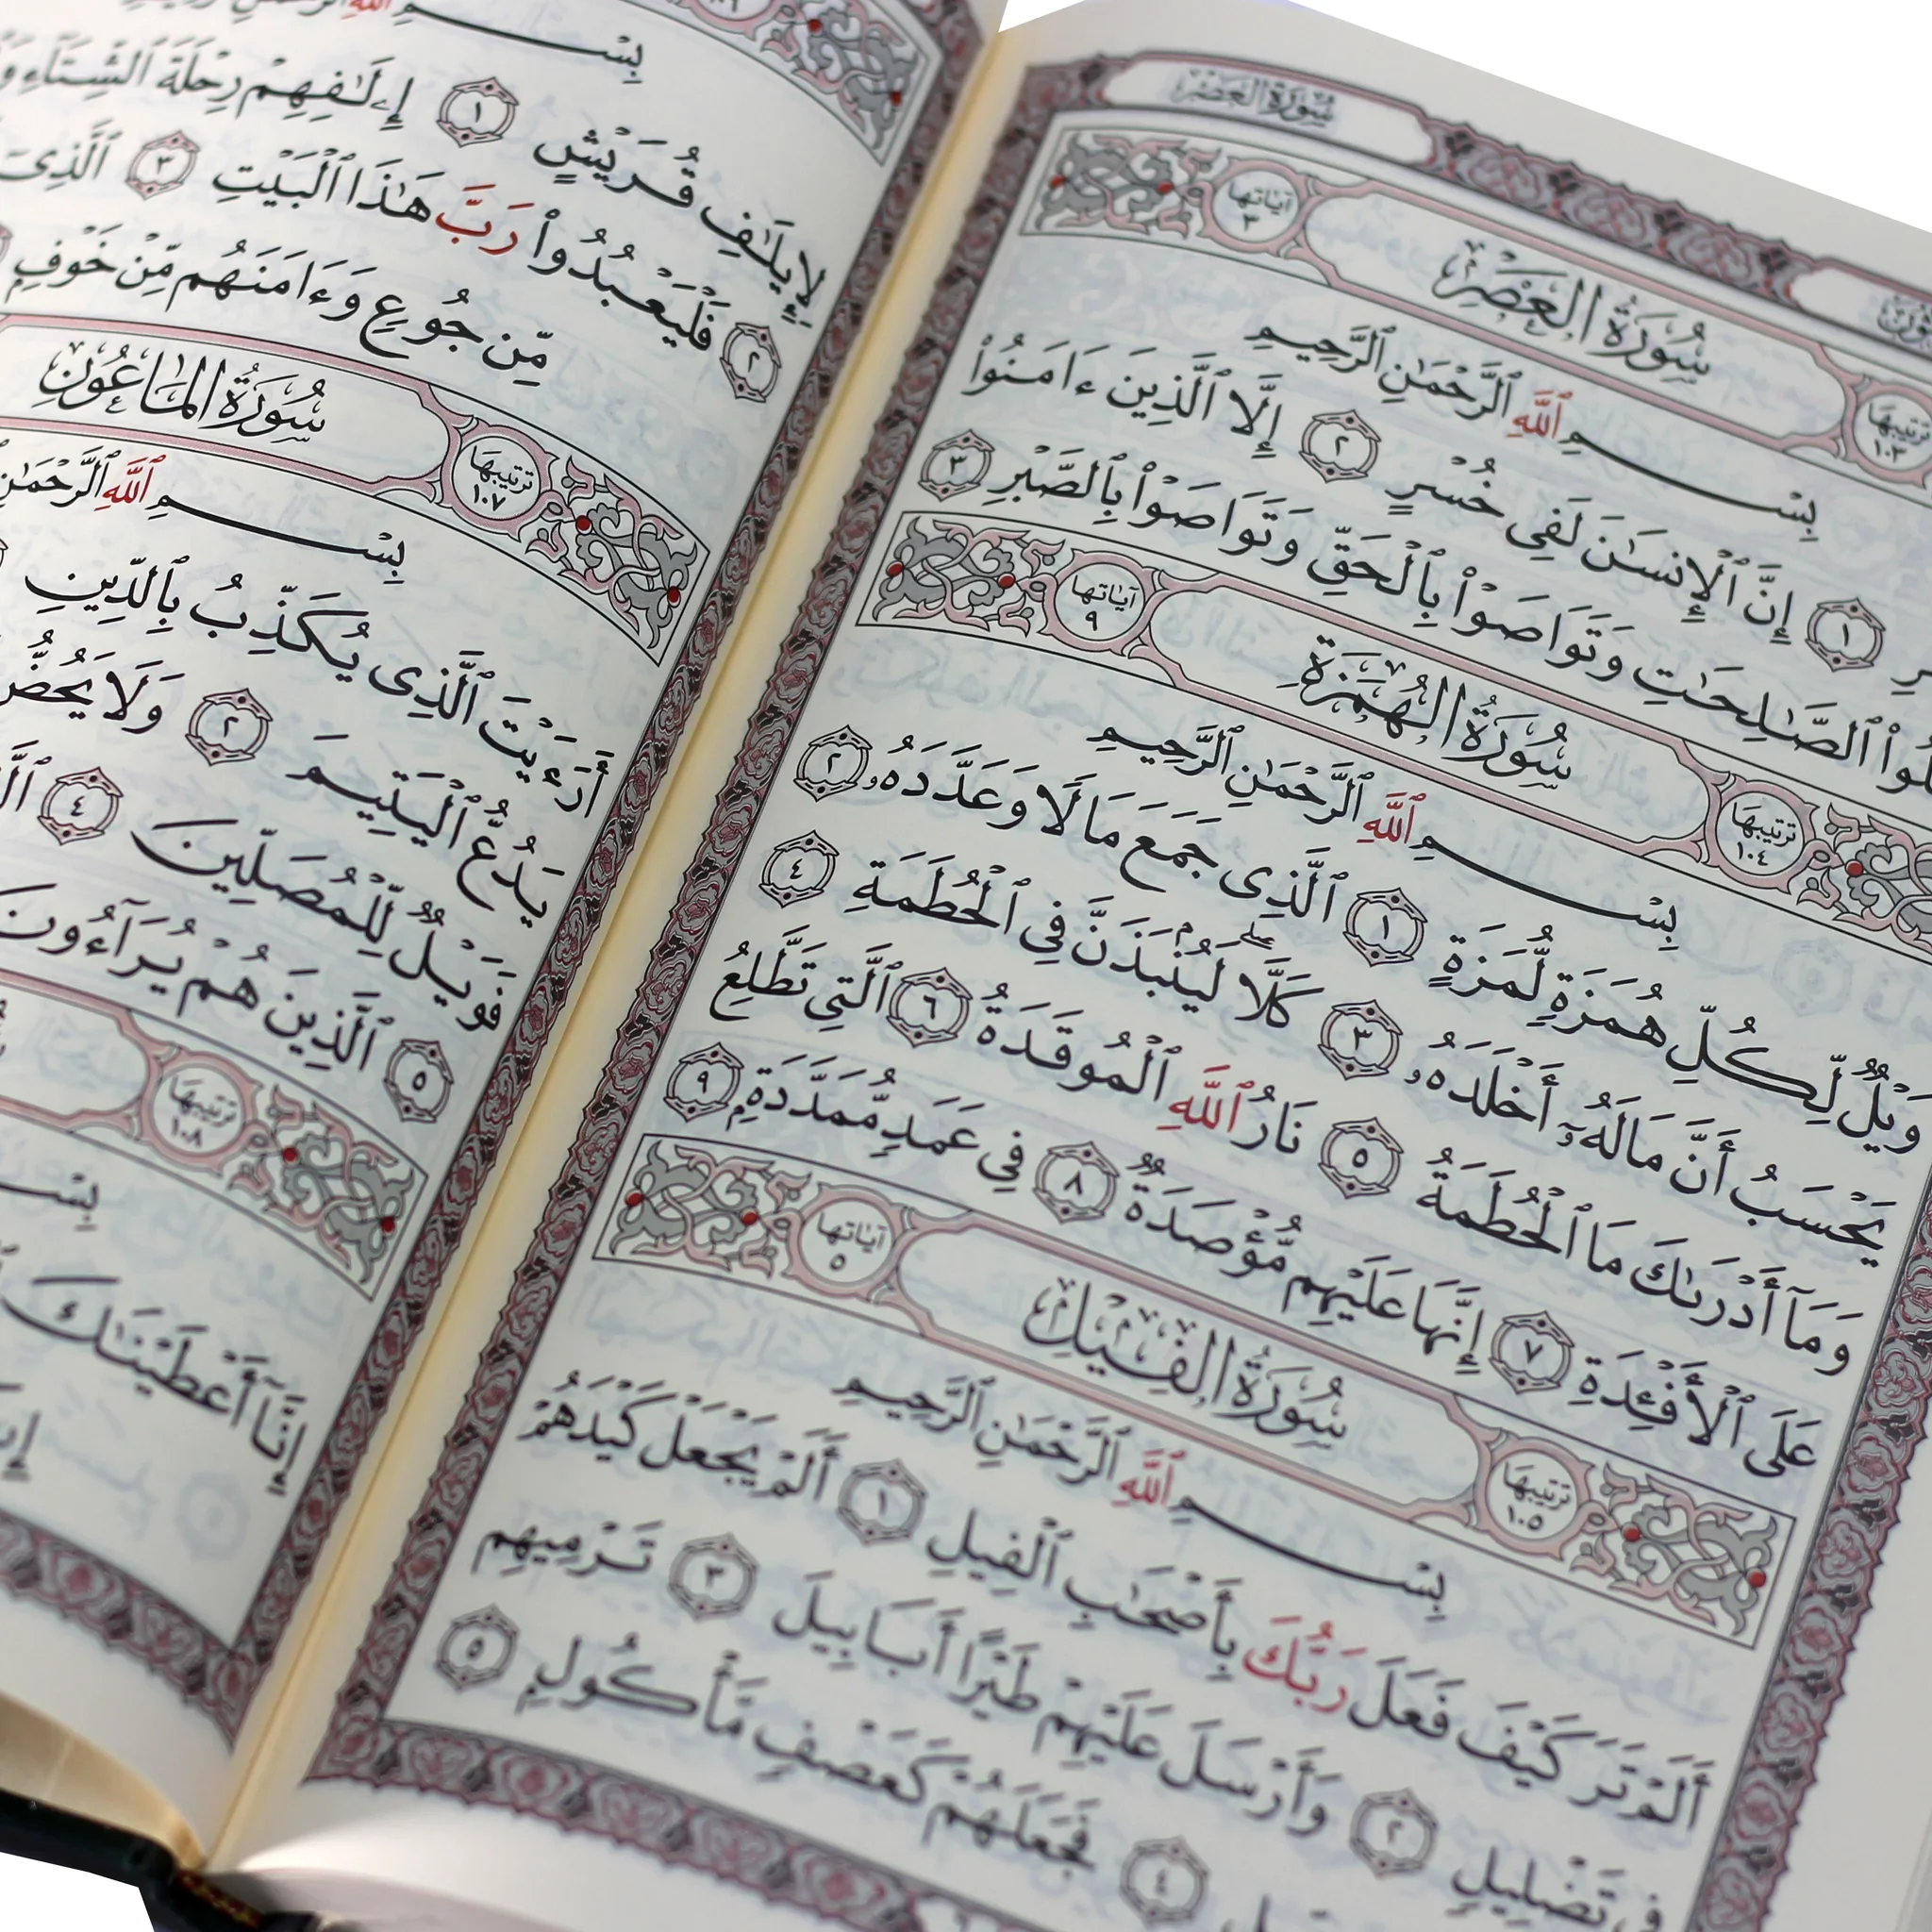 سُورَةُ العَصْرِ
آيَاتها ٣
سُورَةُ العَصْرِ
ترتيبها ١٠٣
بِسْمِ ٱللَّهِ ٱلرَّحْمَٰنِ ٱلرَّحِيمِ
١ إِنَّ ٱلْإِنسَٰنَ لَفِى خُسْرٍ ٢ إِلَّا ٱلَّذِينَ ءَامَنُوا۟
ٱلصَّٰلِحَٰتِ وَتَوَاصَوْا۟ بِٱلْحَقِّ وَتَوَاصَوْا۟ بِٱلصَّبْرِ ٣
ترتيبها ١٠٤
سُورَةُ الهُمَزَةِ
آيَاتها ٩
بِسْمِ ٱللَّهِ ٱلرَّحْمَٰنِ ٱلرَّحِيمِ
وَيْلٌ لِّكُلِّ هُمَزَةٍ لُّمَزَةٍ ١ ٱلَّذِى جَمَعَ مَالًا وَعَدَّدَهُۥ ٢
يَحْسَبُ أَنَّ مَالَهُۥٓ أَخْلَدَهُۥ ٣ كَلَّا ۖ لَيُنۢبَذَنَّ فِى ٱلْحُطَمَةِ ٤
وَمَآ أَدْرَىٰكَ مَا ٱلْحُطَمَةُ ٥ نَارُ ٱللَّهِ ٱلْمُوقَدَةُ ٦ ٱلَّتِى تَطَّلِعُ
عَلَى ٱلْأَفْـِٔدَةِ ٧ إِنَّهَا عَلَيْهِم مُّؤْصَدَةٌ ٨ فِى عَمَدٍ مُّمَدَّدَةٍۭ ٩
ترتيبها ١٠٥
سُورَةُ الفِيلِ
آيَاتها ٥
بِسْمِ ٱللَّهِ ٱلرَّحْمَٰنِ ٱلرَّحِيمِ
أَلَمْ تَرَ كَيْفَ فَعَلَ رَبُّكَ بِأَصْحَٰبِ ٱلْفِيلِ ١ أَلَمْ يَجْعَلْ كَيْدَهُمْ
فِى تَضْلِيلٍ ٢ وَأَرْسَلَ عَلَيْهِمْ طَيْرًا أَبَابِيلَ ٣ تَرْمِيهِم
٤ فَجَعَلَهُمْ كَعَصْفٍ مَّأْكُولٍۭ ٥
بِسْمِ ٱللَّهِ
لِإِيلَٰفِ قُرَيْشٍ ١ إِۦلَٰفِهِمْ رِحْلَةَ ٱلشِّتَآءِ
٢ فَلْيَعْبُدُوا۟ رَبَّ هَٰذَا ٱلْبَيْتِ ٣ ٱلَّذِىٓ
مِّن جُوعٍ وَءَامَنَهُم مِّنْ خَوْفٍۭ
ترتيبها ١٠٧
سُورَةُ المَاعُونِ
بِسْمِ ٱللَّهِ ٱلرَّحْمَٰنِ
أَرَءَيْتَ ٱلَّذِى يُكَذِّبُ بِٱلدِّينِ
يَدُعُّ ٱلْيَتِيمَ ٢ وَلَا يَحُضُّ
فَوَيْلٌ لِّلْمُصَلِّينَ ٤
٥ ٱلَّذِينَ هُمْ يُرَآءُونَ
ترتيبها ١٠٨
بِسْمِ
إِنَّآ أَعْطَيْنَٰكَ